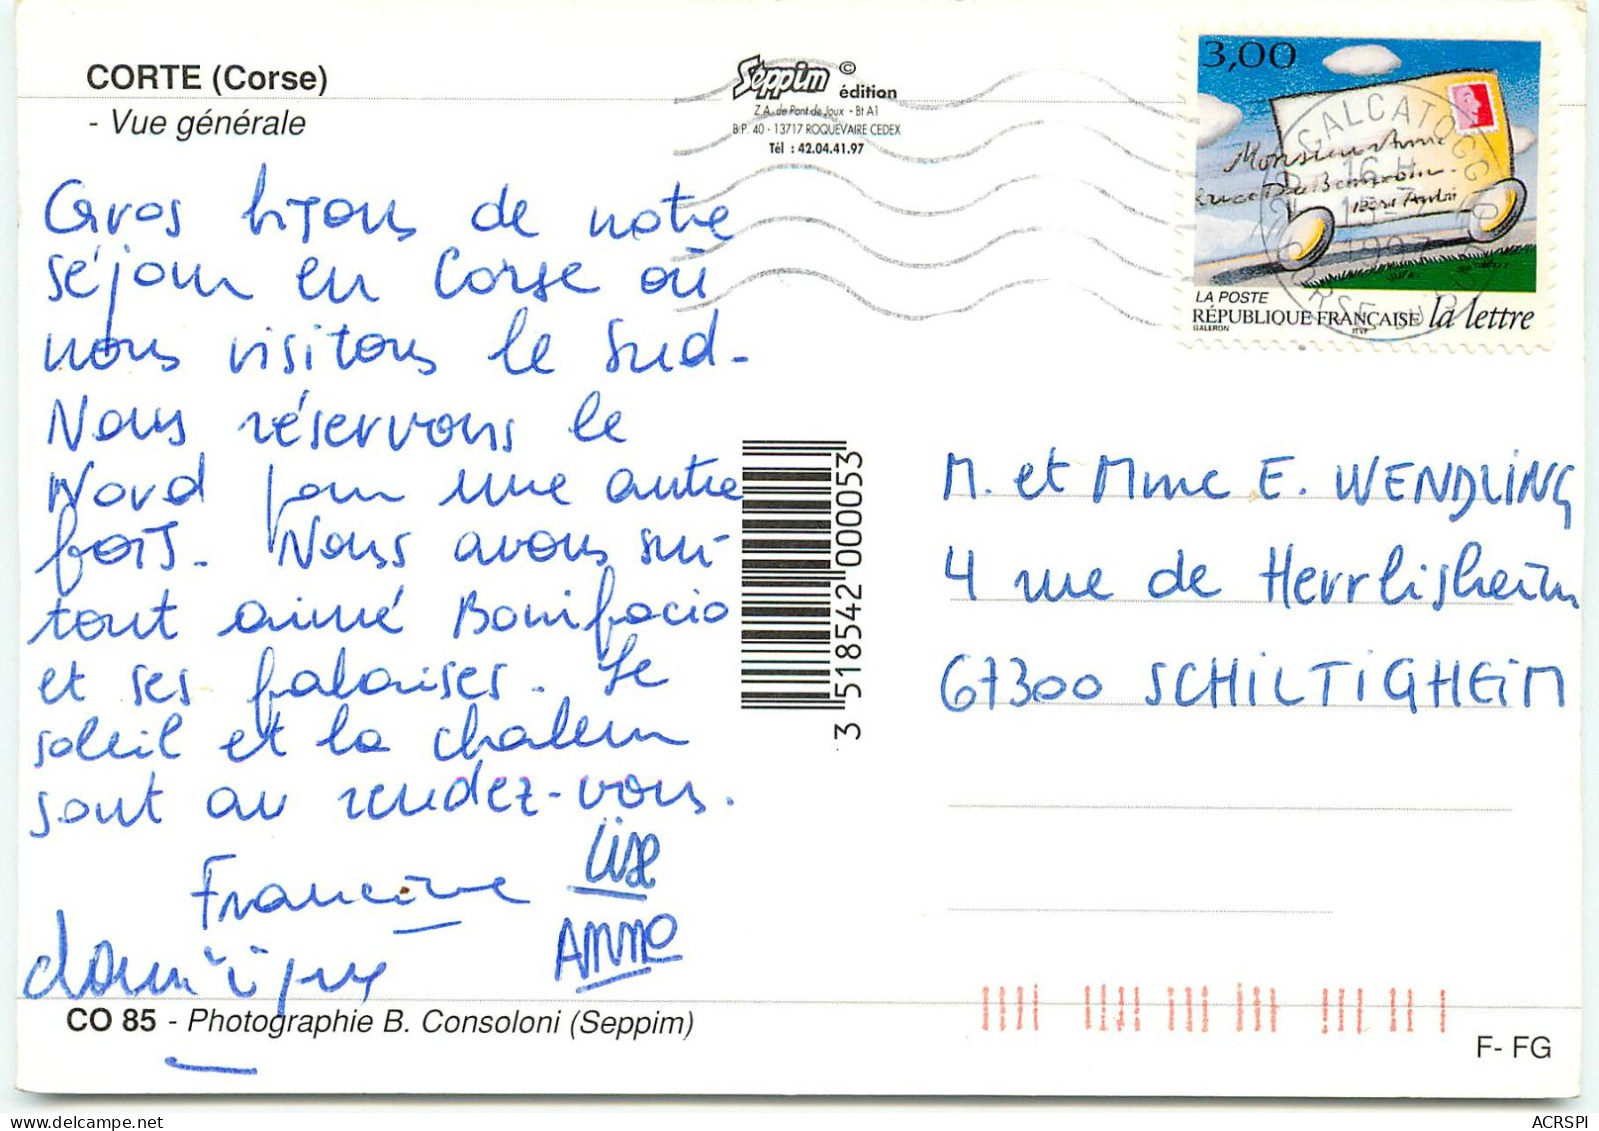 CORTE (Corse)
- Vue générale
Seppim ©
édition
Z.A. de Pont de Joux - Bt A1
B.P. 40 - 13717 ROQUEVAIRE CEDEX
Tél : 42.04.41.97
Gros bisous de notre
séjour en Corse où
nous visitons le Sud.
Nous réservons le
Nord pour une autre
fois. Nous avons sur-
tout aimé Bonifacio
et ses falaises. Le
soleil et la chaleur
sont au rendez-vous.
Francine
Lise
Anne
dominique
CO 85 - Photographie B. Consoloni (Seppim)
3 518542 000053
3,00
Monsieur Anne
LA POSTE
RÉPUBLIQUE FRANÇAISE la lettre
GALERON
ITVF
CALCATOGGIO
16 H
M. et Mme E. WENDLING
4 rue de Herrlisheim
67300 SCHILTIGHEIM
F- FG
ACRSPI